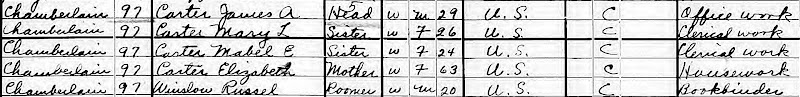 Chamberlain 97 Carter James A Head W M 29 U.S. C Office work
Chamberlain 97 Carter Mary L Sister W F 26 U.S. C Clerical work
Chamberlain 97 Carter Mabel E Sister W F 24 U.S. C Clerical work
Chamberlain 97 Carter Elizabeth Mother W F 63 U.S. C Housework
Chamberlain 97 Winslow Russel Roomer W M 20 U.S. C Bookbinder